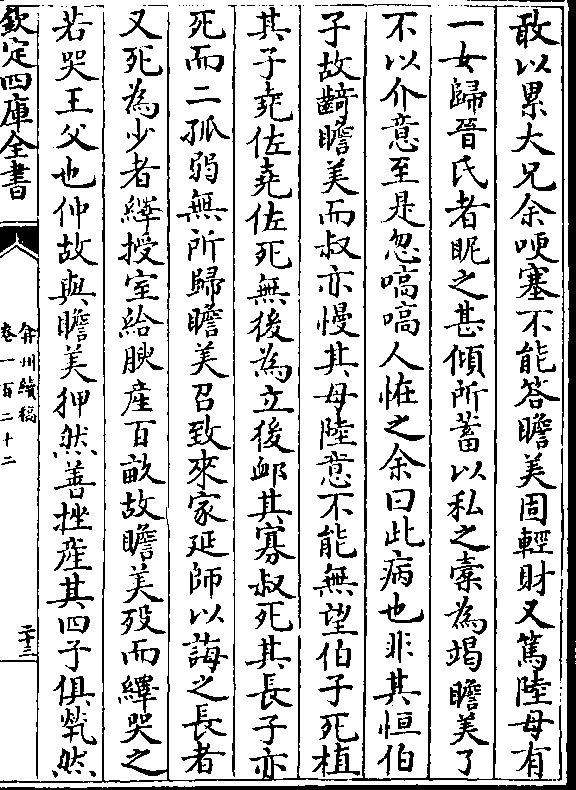 敢以累大兄余哽塞不能答瞻美固輕財又篤陸母有
一女歸晉氏者昵之甚傾所蓄以私之橐為竭瞻美了
不以介意至是忽嗃嗃人恠之余曰此病也非其恒伯
子故齮瞻美而叔亦慢其母陸意不能無望伯子死植
其子堯佐堯佐死無後為立後䘏其寡叔死其長子亦
死而二孤弱無所歸瞻美召致來家延師以誨之長者
又死為少者繹授室給腴產百畝故瞻美歿而繹哭之
若哭王父也仲故與瞻美狎然善挫產其四子俱煢然
欽定四庫全書
弇州續稿
卷一百二十二
二十三